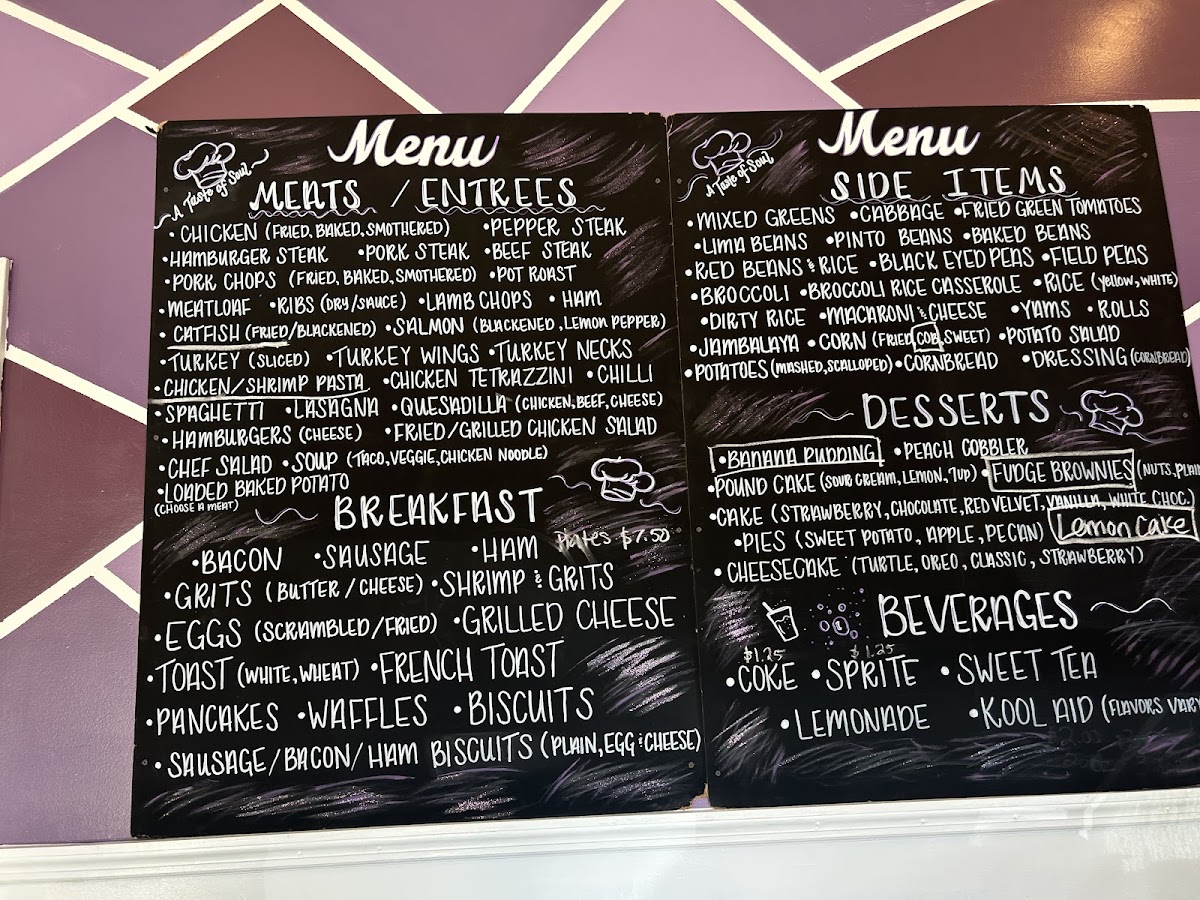 Menu
A Taste of Soul
MEATS / ENTREES
• CHICKEN (FRIED, BAKED, SMOTHERED) • PEPPER STEAK
• HAMBURGER STEAK • PORK STEAK • BEEF STEAK
• PORK CHOPS (FRIED, BAKED, SMOTHERED) • POT ROAST
• MEATLOAF • RIBS (DRY/SAUCE) • LAMB CHOPS • HAM
• CATFISH (FRIED/BLACKENED) • SALMON (BLACKENED, LEMON PEPPER)
• TURKEY (SLICED) • TURKEY WINGS • TURKEY NECKS
• CHICKEN/SHRIMP PASTA • CHICKEN TETRAZZINI • CHILLI
• SPAGHETTI • LASAGNA • QUESADILLA (CHICKEN, BEEF, CHEESE)
• HAMBURGERS (CHEESE) • FRIED/GRILLED CHICKEN SALAD
• CHEF SALAD • SOUP (TACO, VEGGIE, CHICKEN NOODLE)
• LOADED BAKED POTATO
(CHOOSE A MEAT)
BREAKFAST
Plates $7.50
• BACON • SAUSAGE • HAM
• GRITS (BUTTER / CHEESE) • SHRIMP & GRITS
• EGGS (SCRAMBLED/FRIED) • GRILLED CHEESE
• TOAST (WHITE, WHEAT) • FRENCH TOAST
• PANCAKES • WAFFLES • BISCUITS
• SAUSAGE/BACON/HAM BISCUITS (PLAIN, EGG & CHEESE)
Menu
A Taste of Soul
SIDE ITEMS
• MIXED GREENS • CABBAGE • FRIED GREEN TOMATOES
• LIMA BEANS • PINTO BEANS • BAKED BEANS
• RED BEANS & RICE • BLACK EYED PEAS • FIELD PEAS
• BROCCOLI • BROCCOLI RICE CASSEROLE • RICE (YELLOW, WHITE)
• DIRTY RICE • MACARONI & CHEESE • YAMS • ROLLS
• JAMBALAYA • CORN (FRIED, COB, SWEET) • POTATO SALAD
• POTATOES (MASHED, SCALLOPED) • CORNBREAD • DRESSING (CORNBREAD)
DESSERTS
• BANANA PUDDING • PEACH COBBLER
• POUND CAKE (SOUR CREAM, LEMON, 7UP) • FUDGE BROWNIES (NUTS, PLAIN
• CAKE (STRAWBERRY, CHOCOLATE, RED VELVET, VANILLA, WHITE CHOC.)
• PIES (SWEET POTATO, APPLE, PECAN) Lemon Cake
• CHEESECAKE (TURTLE, OREO, CLASSIC, STRAWBERRY)
BEVERAGES
$1.25 $1.25
• COKE • SPRITE • SWEET TEA
• LEMONADE • KOOL AID (FLAVORS VARY